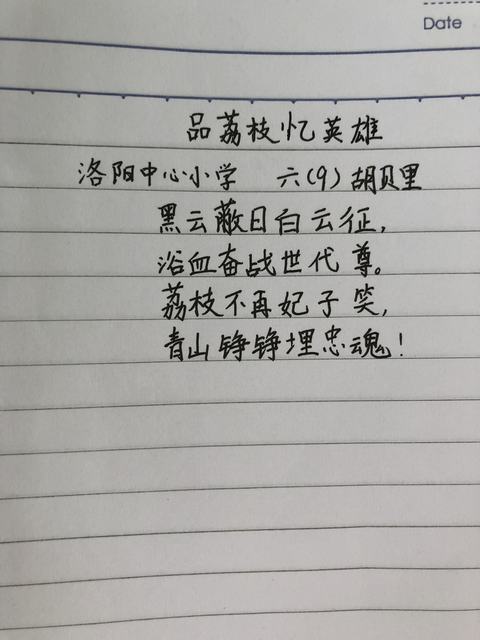 Date
品荔枝忆英雄
洛阳中心小学 六(9) 胡贝里
黑云蔽日白云征,
浴血奋战世代尊。
荔枝不再妃子笑,
青山铮铮埋忠魂!